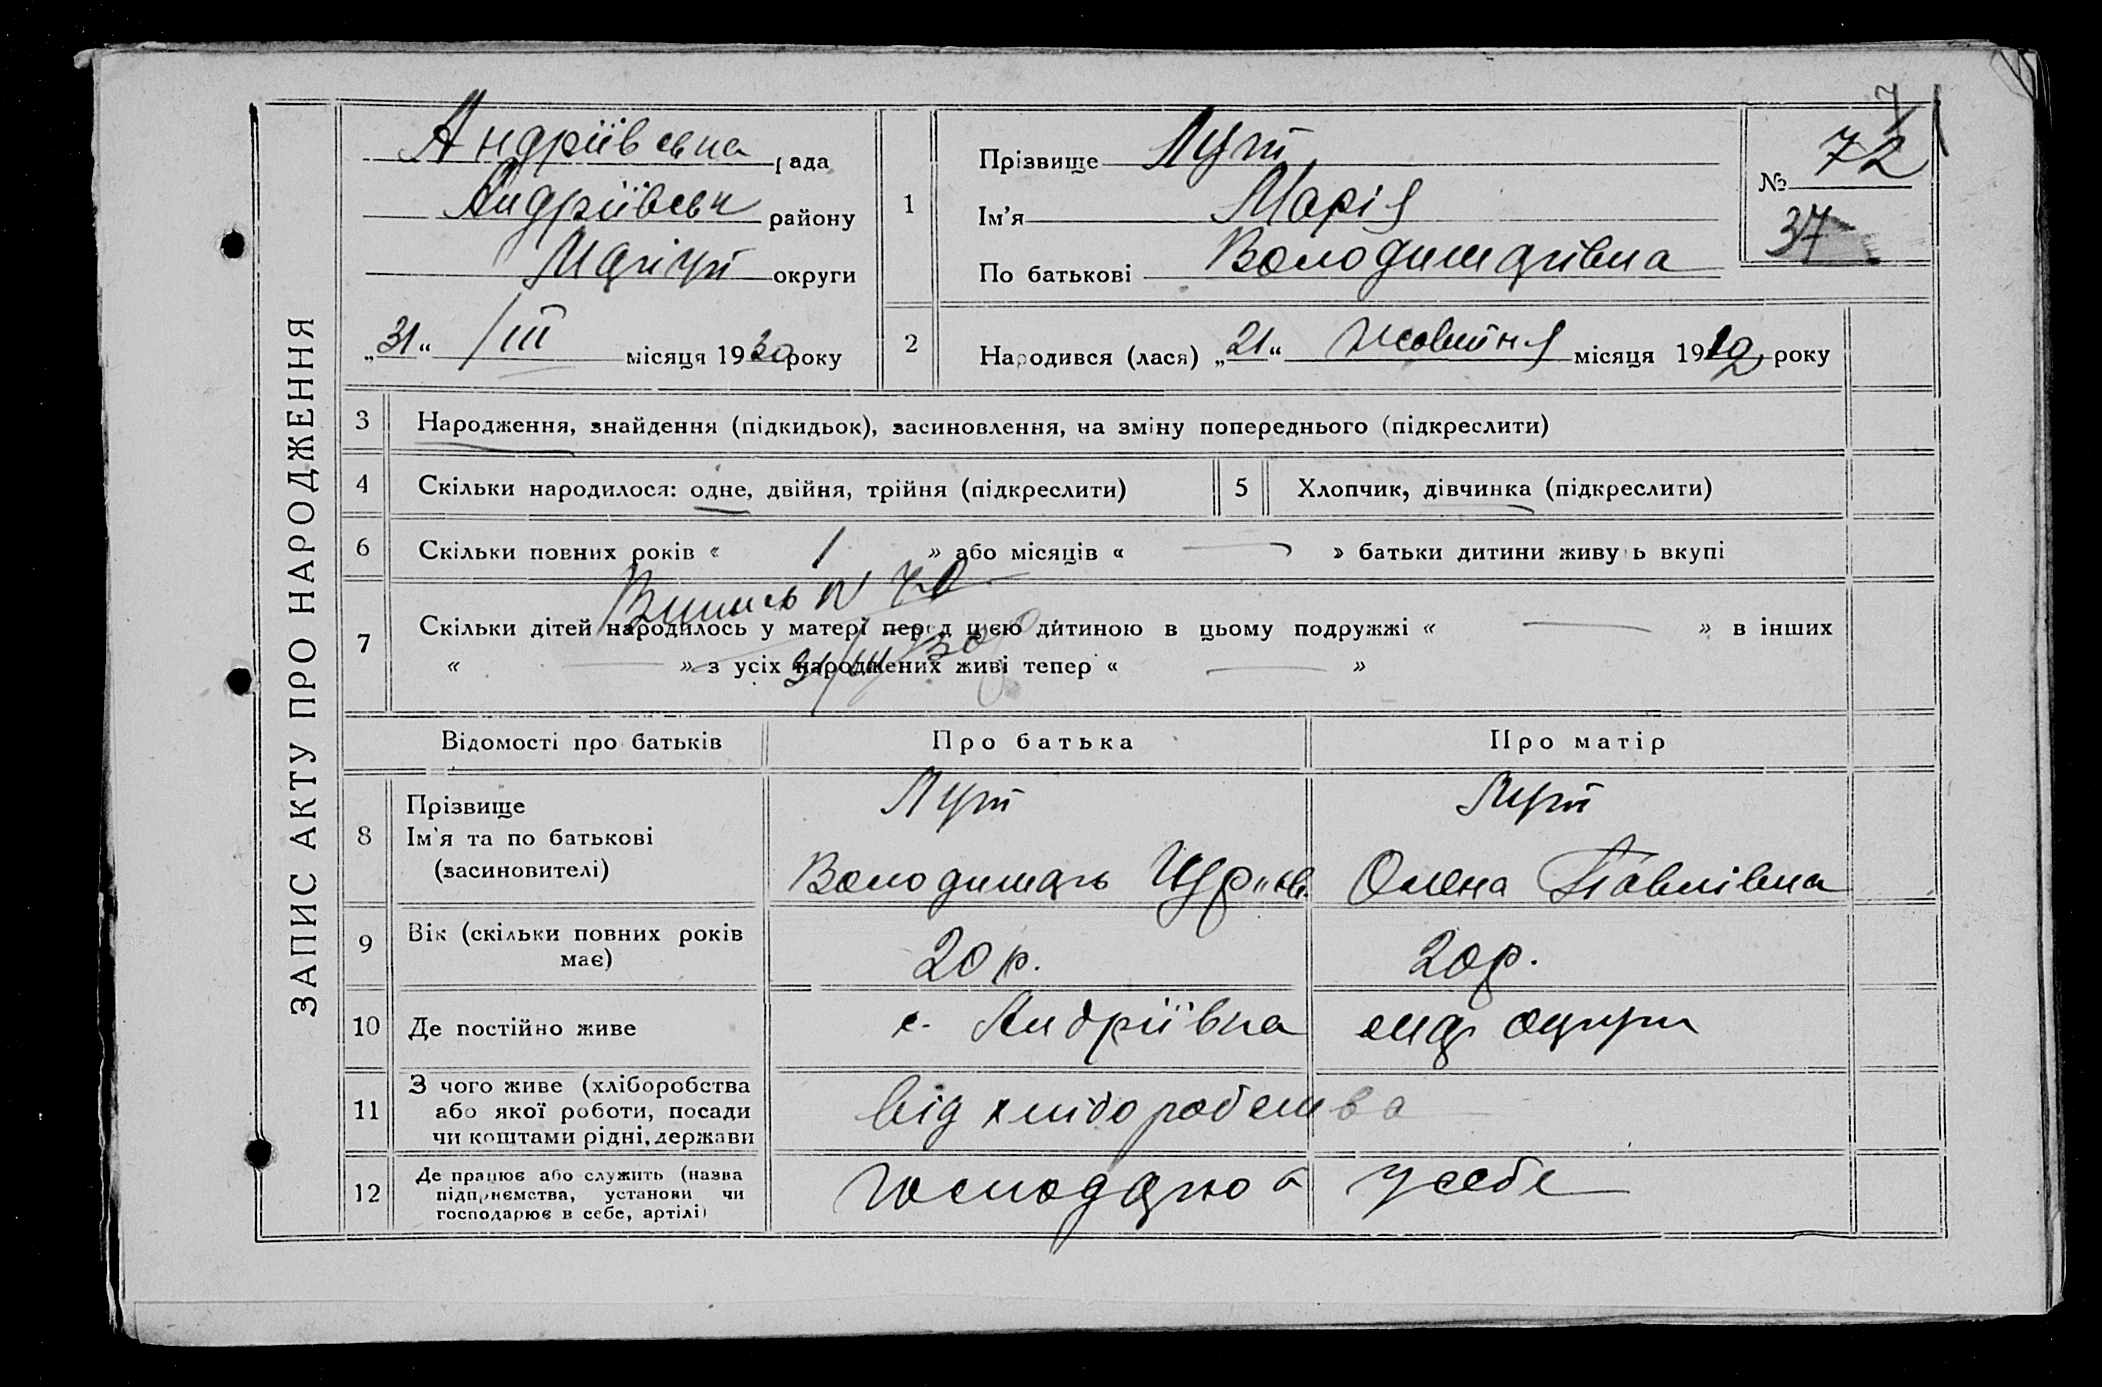 ЗАПИС АКТУ ПРО НАРОДЖЕННЯ
Андріївська рада
Андріївськ району
Маріуп округи
„31“ /III місяця 1930 року
1
Прізвище Лут
Ім'я Марія
По батькові Володимирівна
№ 72
37
2
Народився (лася) „21“ жовтня місяця 1929 року
3 Народження, знайдення (підкидьок), засиновлення, на зміну попереднього (підкреслити)
4 Скільки народилося: одне, двійня, трійня (підкреслити)
5 Хлопчик, дівчинка (підкреслити)
6 Скільки повних років « 1 » або місяців « — » батьки дитини живуть вкупі
Випись N 70
7 Скільки дітей народилось у матері перед цією дитиною в цьому подружжі « — » в інших
« — » з усіх народжених живі тепер « — »
31/III 30
Відомості про батьків Про батька Про матір
8
Прізвище
Ім'я та по батькові
(засиновителі)
Лут Лут
Володимир Олена Павлівна
9 Вік (скільки повних років
має)
20 р. 20 р.
10 Де постійно живе с. Андріївка
11
З чого живе (хліборобства
або якої роботи, посади
чи коштами рідні, держави
від хліборобства
12
Де працює або служить (назва
підприємства, установи чи
господарює в себе, артілі)
у себе